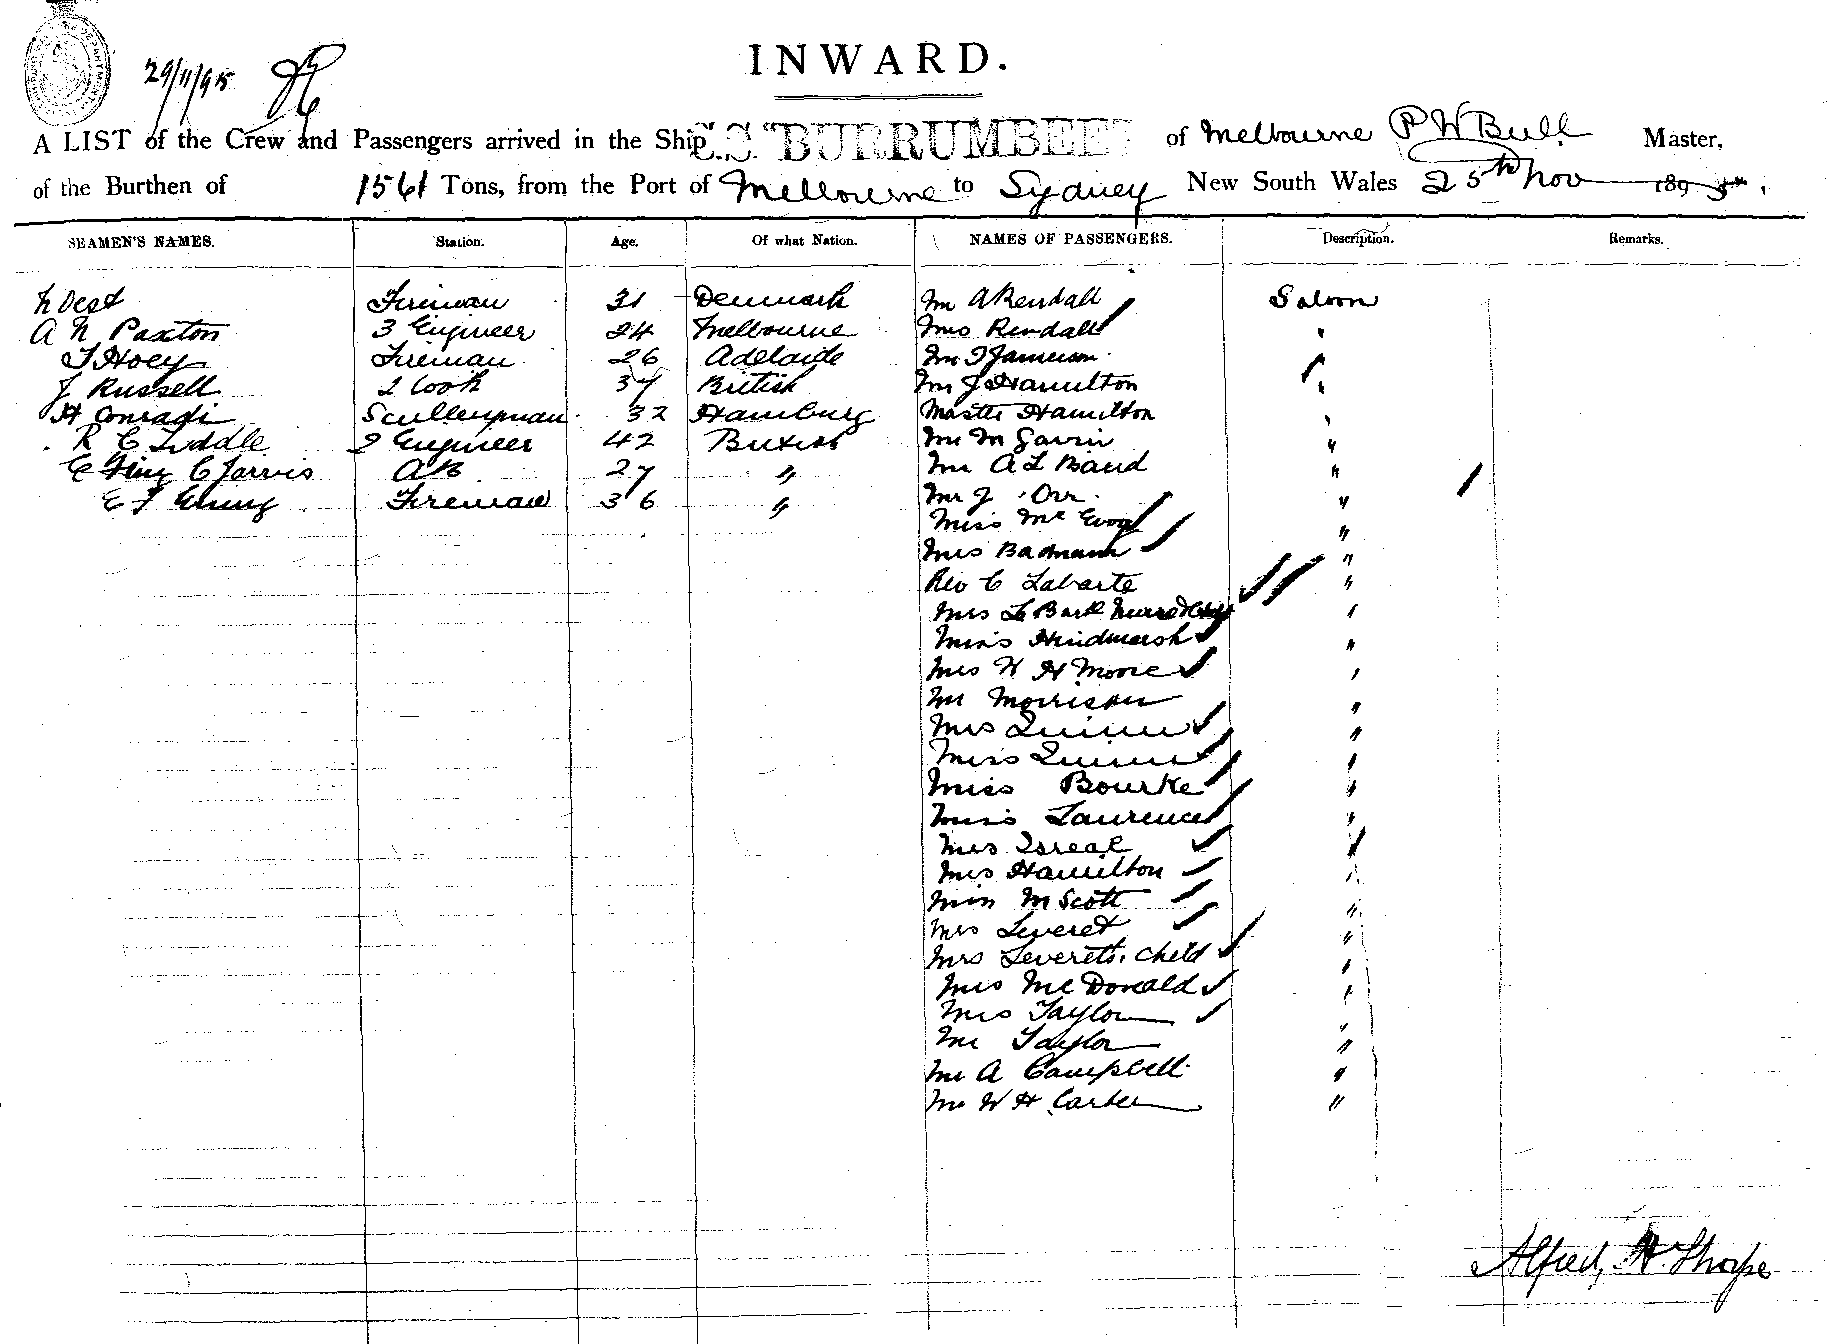 29/11/95
INWARD.
A LIST of the Crew and Passengers arrived in the Ship S.S. "BURRUMBEET" of Melbourne P W Bull Master,
of the Burthen of 1561 Tons, from the Port of Melbourne to Sydney New South Wales 25th Nov 1895
SEAMEN'S NAMES. Station. Age. Of what Nation. NAMES OF PASSENGERS. Description. Remarks.
N Dest Fireman 31 Denmark Mr A Rendall Saloon
A N Paxton 3 Engineer 24 Melbourne Mrs Rendall "
T Hoey Fireman 26 Adelaide Mr T Jamieson
J Russell 2 Cook 37 British Mr J Hamilton "
H Conradi Sculleryman 32 Hamburg Master Hamilton "
R C Liddle 2 Engineer 42 British Mr M Gavin "
C Jarvis AB 27 " Mr A L Baird "
E F Fireman 36 " Mr J Orr "
Miss McEvoy "
Mrs Badmann "
Rev C Labarte "
Mrs Le Bark "
Miss Hindmarsh "
Mrs W H Moore "
Mr Morrison "
Mrs Quinn "
Miss Quinn "
Miss Bourke "
Miss Laurence "
Mrs Isreal "
Mrs Hamilton "
Miss M Scott "
Mrs Leveret "
Mrs Leverets child "
Mrs McDonald "
Mrs Taylor "
Mr Taylor "
Mr A Campbell "
Mr W H Carter "
Alfred H Thorpe